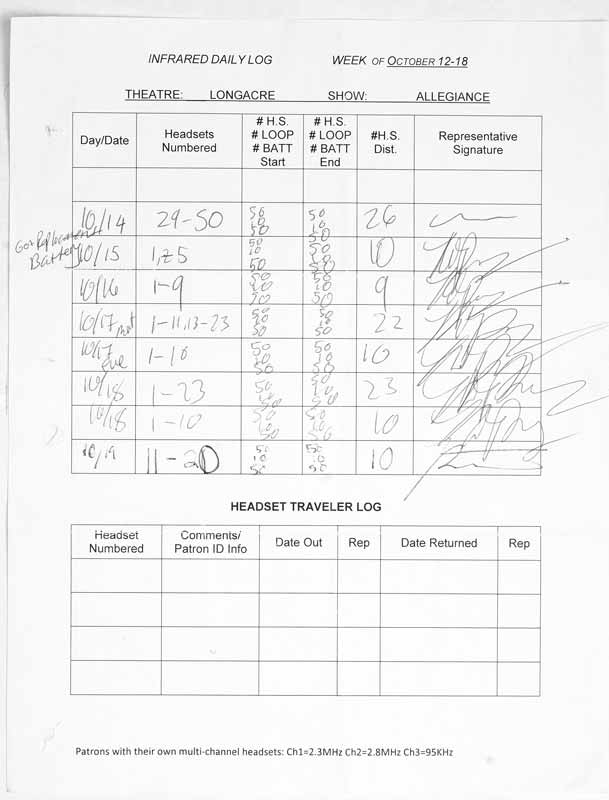 INFRARED DAILY LOG WEEK OF OCTOBER 12-18
THEATRE: LONGACRE SHOW: ALLEGIANCE
Day/Date
Headsets
Numbered
# H.S.
# LOOP
# BATT
Start
# H.S.
# LOOP
# BATT
End
#H.S.
Dist.
Representative
Signature
10/14 29-50 50 10 50 50 10 50 26
Got Replacement
Battery
10/15 50 10 50 50 10 50 10
10/16 1-9 50 10 50 50 10 50 9
10/17 mat 1-11,13-23 50 50 50 10 50 22
10/17 Eve 1-10 50 10 50 50 10 50 10
10/18 1-23 50 10 50 50 10 50 23
10/18 1-10 50 10 50 50 10 50 10
10/19 11-20 50 10 50 50 10 50 10
HEADSET TRAVELER LOG
Headset
Numbered
Comments/
Patron ID Info
Date Out
Rep
Date Returned
Rep
Patrons with their own multi-channel headsets: Ch1=2.3MHz Ch2=2.8MHz Ch3=95KHz